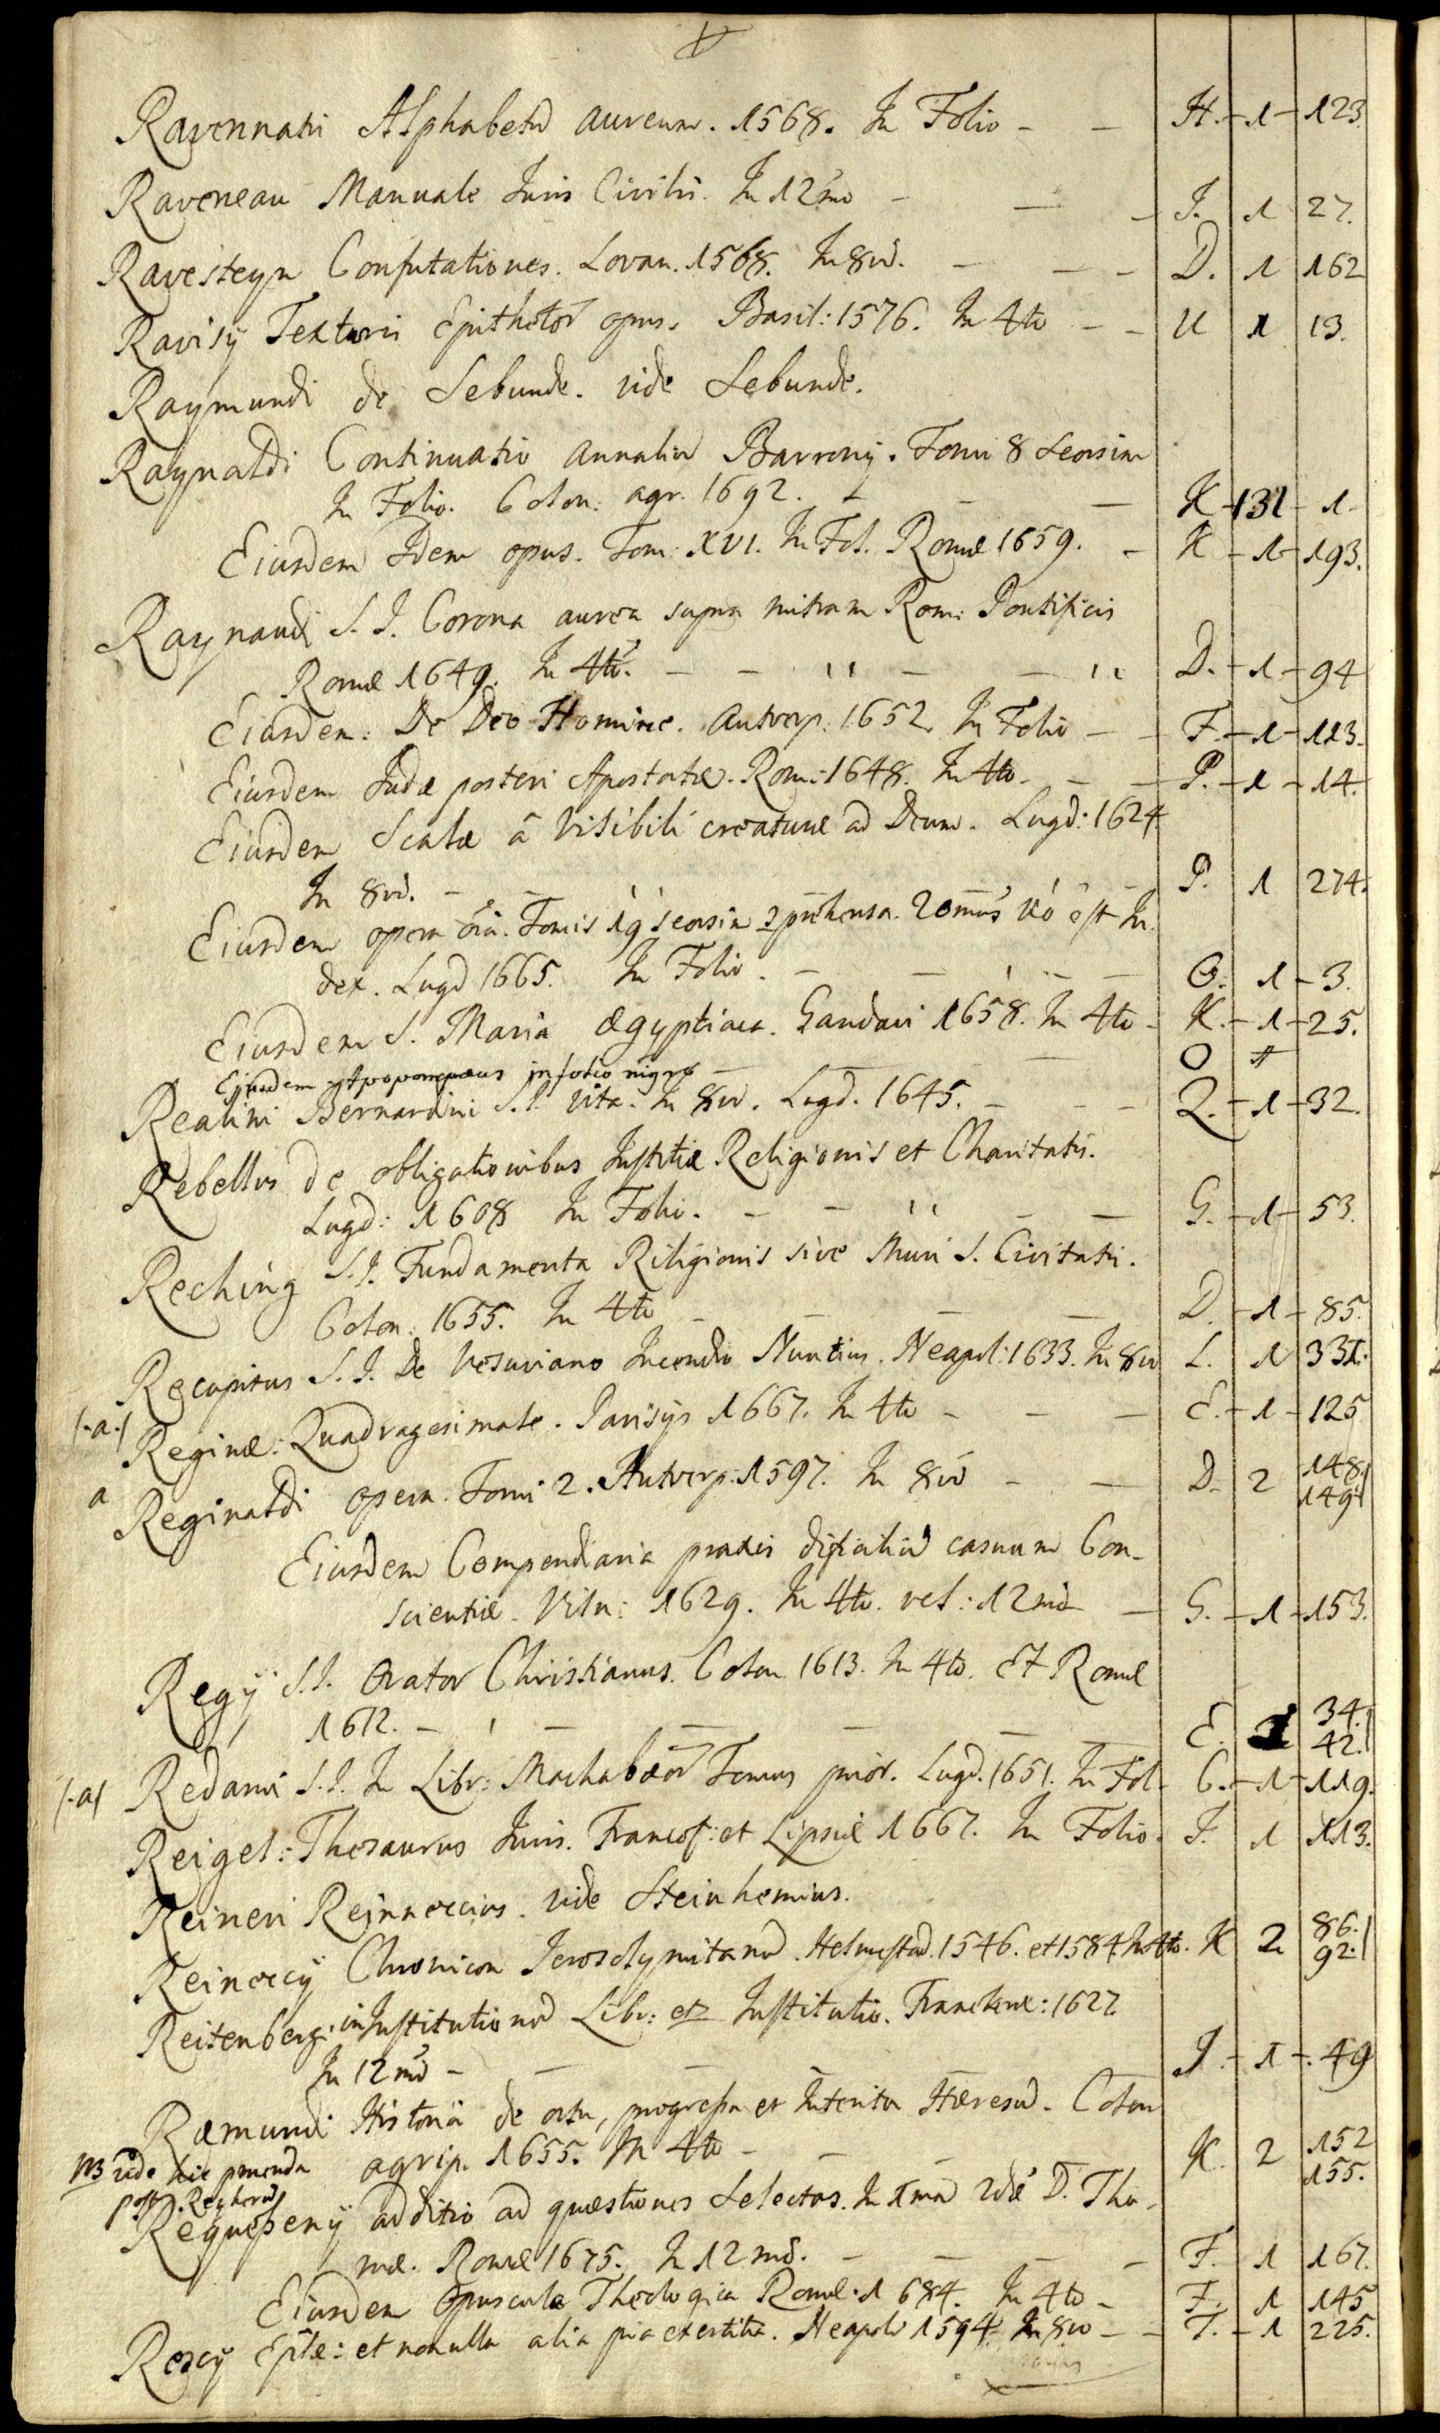 Ravennatis Alphabetū aureum. 1568. In Folio - — H. - 1 - 123.
Raveneau Manuale Juris Civilis. In 12mo - — - J. 1 27.
Ravesteyn Confutationes. Lovan. 1568. In 8vō. - — - D. 1 162
Ravisÿ Textoris Epithetor̄ opus. Basil: 1576. In 4to - - U 1 13.
Raymundi de Sebunde. vide Sebunde.
Raynaldi Continuatio annaliū Barronÿ. Tomi 8 seorsim
In Folio. Colon: agr. 1692. - - — K 131 - 1.
Eiusdem Idem opus. Tom: XVI. In Fol. Romæ 1659. - K - 1 - 193.
Raynaudi S. J. Corona aurea supra mitram Rom: Pontificis
Romæ 1649. In 4tō. — - - — D. - 1 - 94
Eiusdem: De Deo Homine. Antverp: 1652. In Folio - - F. - 1 - 113.
Eiusdem Judæ posteri Apostatæ. Rom: 1648. In 4to. - — P. - 1 - 14.
Eiusdem Scalæ â visibili creaturæ ad Deum. Lugd: 1624
In 8vō. - — P. 1 274.
Eiusdem opera ōīa. Tomis 19 seorsim ꝯprehensa. 20mus vo est In-
dex. Lugd 1665. In Folio. - — - — O. 1 - 3.
Eiusdem S. Maria Ægyptiaca. Gandavi 1658. In 4to - K. - 1 - 25.
Ejusdem Apopompæus in folio nigro — O #
Realini Bernardini S. J. vita. In 8vo. Lugd. 1645. - - - Q. - 1 - 32.
Rebellus de obligationibus Justitiæ Religionis et Charitatis.
Lugd: 1608 In Folio. - - — — G. - 1 - 53.
Reching S. J. Fundamenta Religionis sive Muri S. Civitatis.
Colon: 1655. In 4to - — - — D. - 1 - 85.
Recupitus S. J. De Vesuviano Incendio Nuntius. Neapol: 1633. In 8vo L. 1 331.
/-a-/ Reginæ: Quadragesimale. Parisÿs 1667. In 4to - — — E. - 1 - 125
a Reginaldi opera. Tomi 2. Antverp: 1597. In 8vō - — D. 2 148. 149.
Eiusdem Compendiaria praxis difficiliū casuum Con-
scientiæ. Viln: 1629. In 4to. vel: 12mō — G. - 1 - 153.
Regÿ S. J. Orator Christianus. Colon 1613. In 4to. Et Romæ
1612. - — — — E. 34. 42.
/-a/ Redani S. J. In Libr: Machabæor̄ Tomus prior. Lugd. 1651. In Fol - C. - 1 - 119.
Reigel: Thesaurus Juris. Francof: et Lipsiæ 1667. In Folio. J. 1 113.
Reineri Reinneccius. vide Steinhemius.
Reineccÿ Chronicon Ierosolymitanū. Helmestad. 1546. et 1584 In 4to. K 2 86. 92.
Reitenberg: in Institutionū Libr: et Institutio. Franekeræ: 1627
In 12mō - — — J. - 1 - 49
Ræmundi Historia de ortu, progressu et Interitu Hæresū. Colon
agrip. 1655. In 4to - — — K. 2 152 155.
NB vide hic ponenda post Reyherū
Requesenÿ additio ad quæstiones Selectas. In 1ma 2dæ D. Tho-
mæ. Romæ 1675. In 12mō. - — — - F. 1 167.
Eiusdem Opuscula Theologica Romæ. 1684. In 4to - F. 1 145
Rescÿ Eplæ: et nonulla alia pia exercitia. Neapoli 1594. In 8vo - - T. - 1 225.